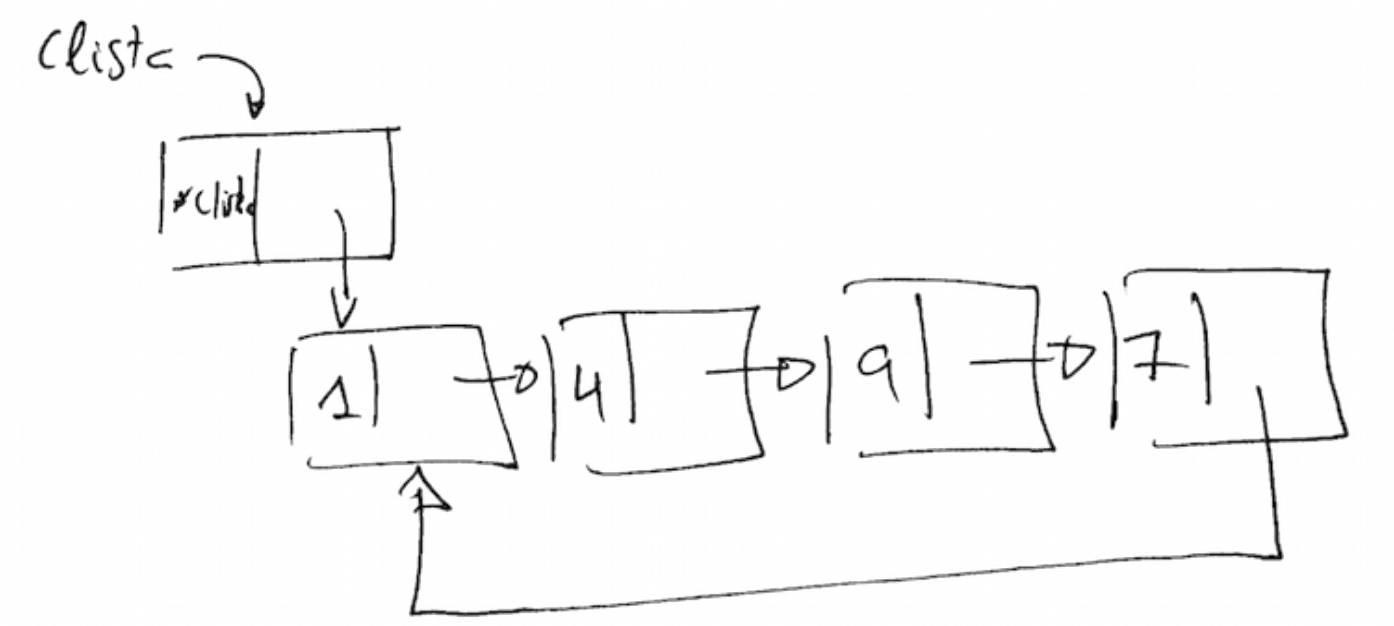 Clista
*Clista
1 4 9 7